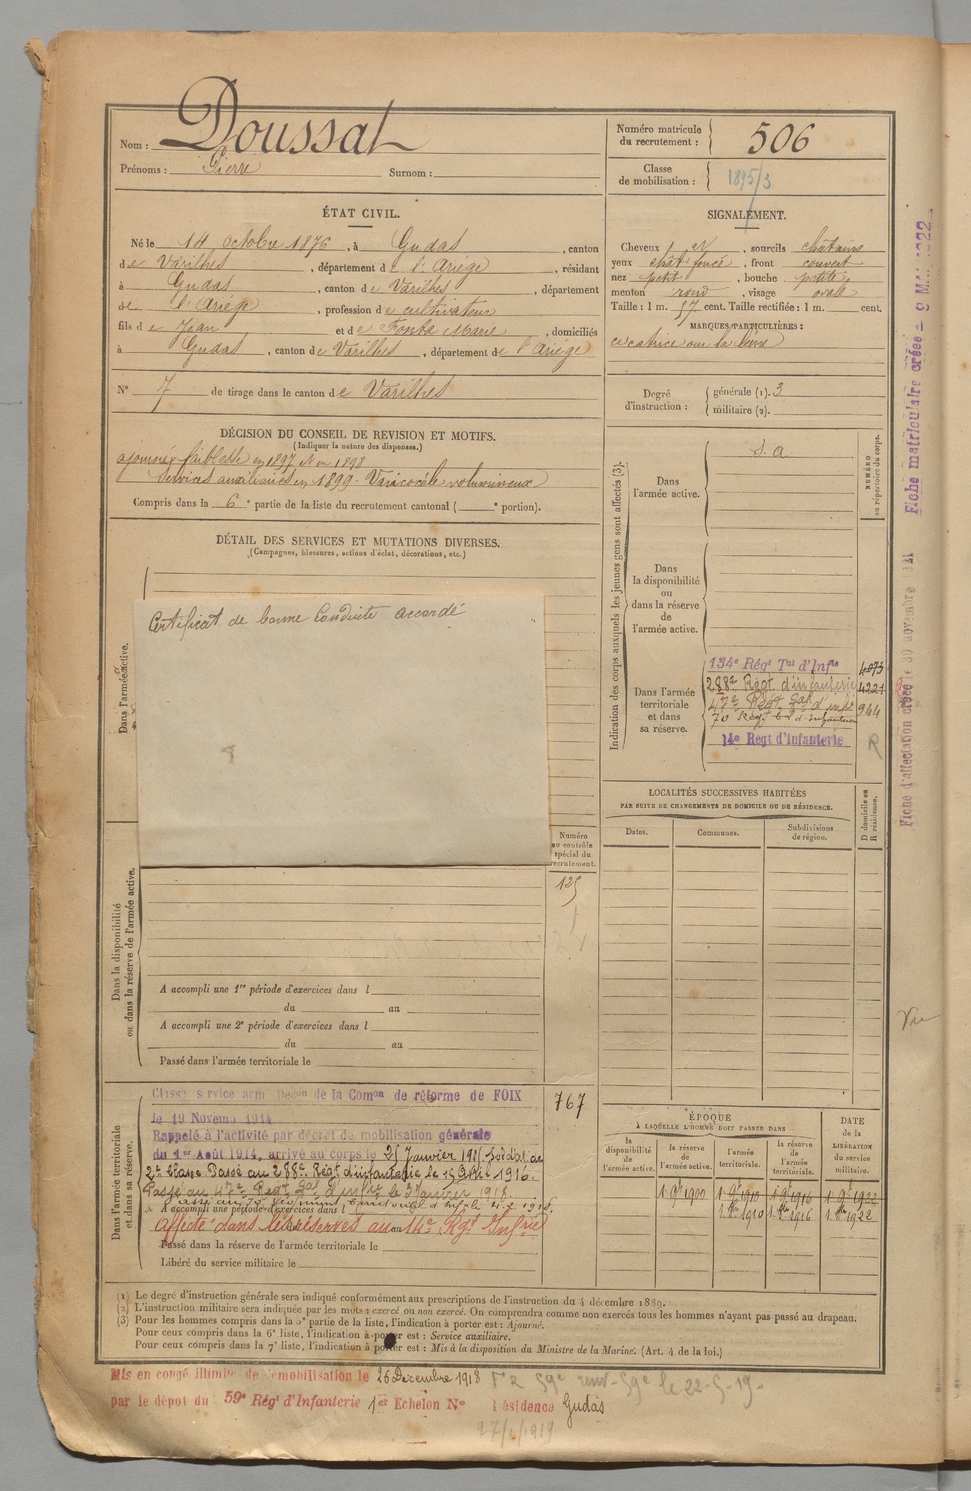 Nom : Doussat
Prénoms : Pierre Surnom :
Numéro matricule du recrutement : 506
Classe de mobilisation : 1895/3
ÉTAT CIVIL.
Né le 14 octobre 1876, à Gudas, canton
de Varilhes, département de l'Ariège, résidant
à Gudas, canton de Varilhes, département
de l'Ariège, profession de cultivateur
fils de Jean et de Fonta Marie, domiciliés
à Gudas, canton de Varilhes, département de l'Ariège
N° 7 de tirage dans le canton de Varilhes
DÉCISION DU CONSEIL DE REVISION ET MOTIFS.
(Indiquer la nature des dispenses.)
ajourné faiblesse en 1897 et en 1898
Services auxiliaires en 1899. Varicocèle volumineux
Compris dans la 6e partie de la liste du recrutement cantonal ( e portion).
SIGNALEMENT.
Cheveux et, sourcils châtains
yeux chât foncé, front couvert
nez petit, bouche petite
menton rond, visage ovale
Taille : 1 m. 57 cent. Taille rectifiée : 1 m. cent.
MARQUES PARTICULIÈRES :
cicatrice sur la lèvre
Degré d'instruction : générale (1). 3
militaire (2).
DÉTAIL DES SERVICES ET MUTATIONS DIVERSES.
(Campagnes, blessures, actions d'éclat, décorations, etc.)
Dans l'armée active.
Certificat de bonne Conduite accordé
Indication des corps auxquels les jeunes gens sont affectés (3).
NUMÉRO au répertoire du corps.
Dans l'armée active.
S. a
Dans la disponibilité ou dans la réserve de l'armée active.
Dans l'armée territoriale et dans sa réserve.
134e Régt Tal d'Infie 4073
288e Régt. d'infanterie 4221
47e Régt Gal d'infie 944
70 Régt d'infanterie
14e Regt d'Infanterie R
LOCALITÉS SUCCESSIVES HABITÉES
PAR SUITE DE CHANGEMENTS DE DOMICILE OU DE RÉSIDENCE.
Dates. Communes. Subdivisions de région. D domicile ou R résidence.
Numéro au contrôle spécial du recrutement.
125
Dans la disponibilité ou dans la réserve de l'armée active.
A accompli une 1re période d'exercices dans l
du au
A accompli une 2e période d'exercices dans l
du au
Passé dans l'armée territoriale le
Dans l'armée territoriale et dans sa réserve.
767
Classé service armé Décon de la Comon de réforme de FOIX
le 19 Novemb 1914
Rappelé à l'activité par décret de mobilisation générale
du 1er Août 1914, arrivé au corps le 25 Janvier 1915. Soldat de
2e classe Passé au 288e Régt d'infanterie le 15 Octbre 1916.
Passé au 47e Regt Gal d'infie le Janvier 1918.
Passé au 70 Régiment territorial d'Infie le 4.2.1918.
A accompli une période d'exercices dans l
du au
affecté dans les réserves au 14e Rgt Infrie
Passé dans la réserve de l'armée territoriale le
Libéré du service militaire le
ÉPOQUE
À LAQUELLE L'HOMME DOIT PASSER DANS
la disponibilité de l'armée active.
la réserve de l'armée active.
l'armée territoriale.
la réserve de l'armée territoriale.
DATE de la LIBÉRATION DU service militaire.
1 9bre 1900 1 9bre 1910 1 9bre 1916 1 9bre 1922
1 8bre 1910 1 8bre 1916 1 8bre 1922
(1) Le degré d'instruction générale sera indiqué conformément aux prescriptions de l'instruction du 4 décembre 1889.
(2) L'instruction militaire sera indiquée par les mots : exercé ou non exercé. On comprendra comme non exercés tous les hommes n'ayant pas passé au drapeau.
(3) Pour les hommes compris dans la 5e partie de la liste, l'indication à porter est : Ajourné.
Pour ceux compris dans la 6e liste, l'indication à porter est : Service auxiliaire.
Pour ceux compris dans la 7e liste, l'indication à porter est : Mis à la disposition du Ministre de la Marine. (Art. 4 de la loi.)
Mis en congé illimité de démobilisation le 26 Décembre 1918
par le dépot du 59e Régt d'Infanterie 1er Echelon N° Résidence Gudas
59e le 22-5-19-
Fiche matriculaire créée 9 MAI 1922
Fiche d'affectation créée le 30 novembre 1921
Vu